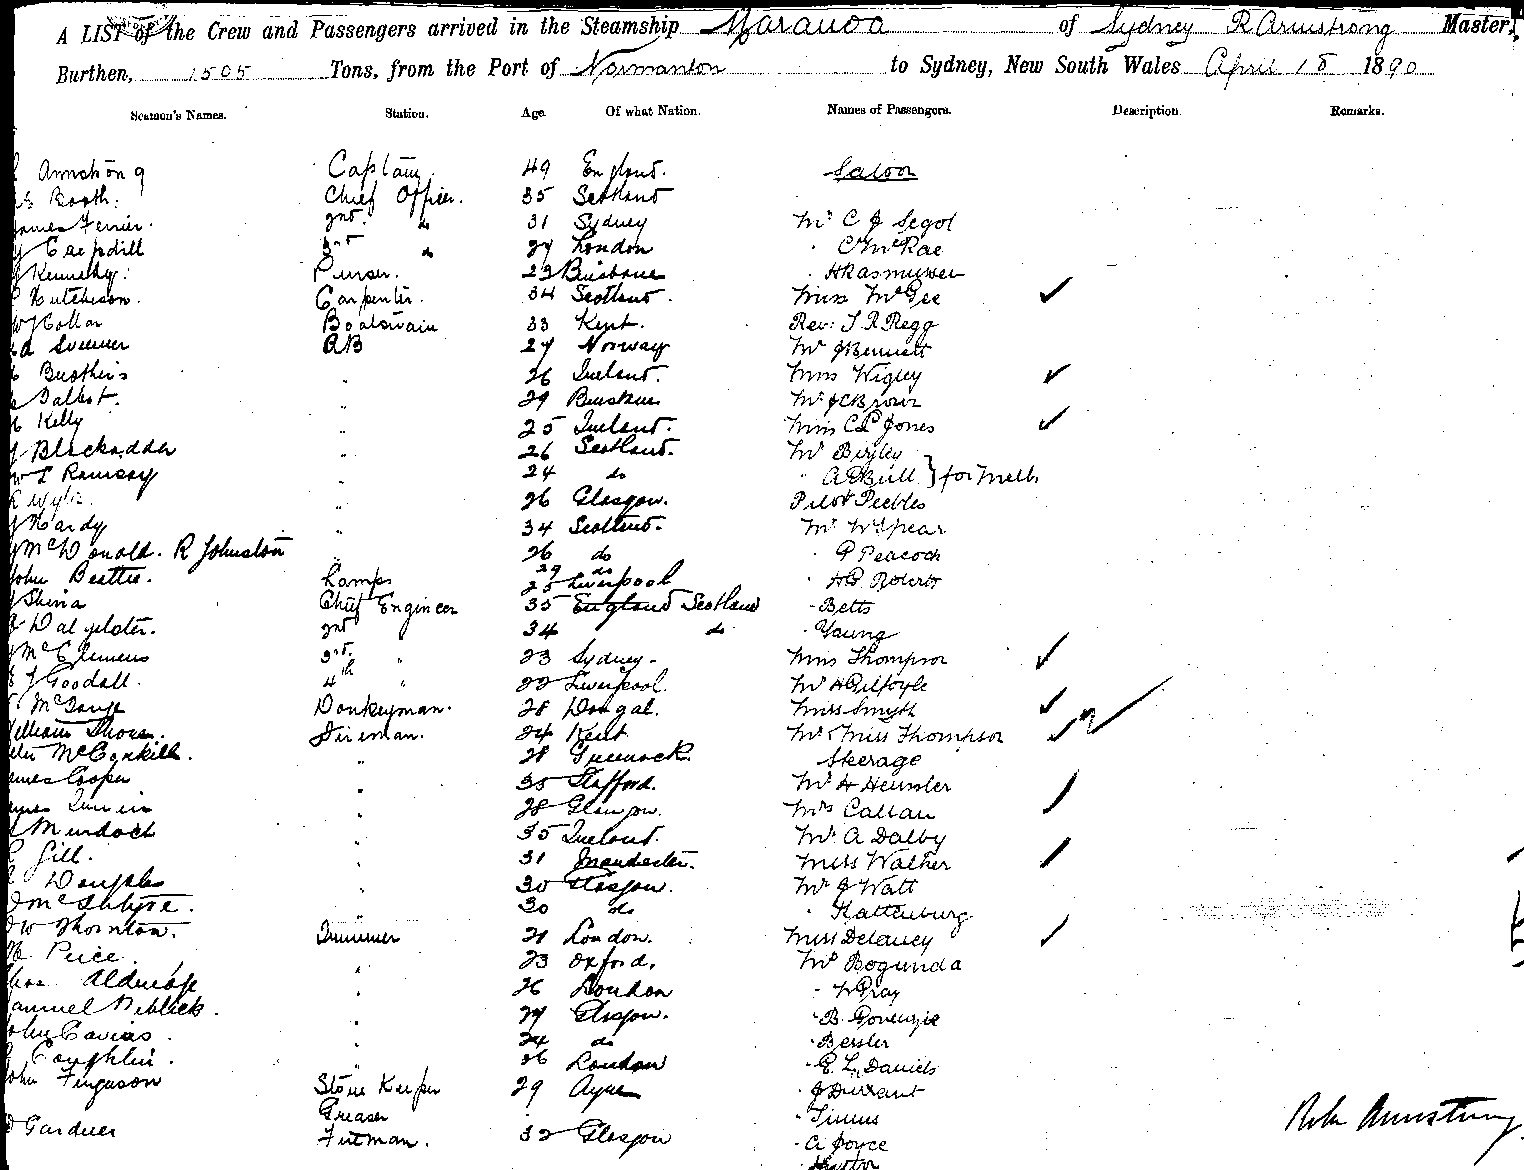 A LIST of the Crew and Passengers arrived in the Steamship Maranoa of Sydney R Armstrong Master,
Burthen, 1505 Tons, from the Port of Normanton to Sydney, New South Wales April 18 1890
Seamen's Names. Station. Age Of what Nation. Names of Passengers. Description. Remarks.
Armstrong Captain 49 England. Saloon
Booth. Chief Officer. 35 Scotland
James Ferrier. 2nd do 31 Sydney Mr C J Segol
3rd do 27 London C McRae
Kennedy. Purser. 23 Brisbane H Rasmussen
Hutchison. Carpenter. 34 Scotland. Miss McGee
Boatswain 33 Kent. Rev: J R Regg
AB 27 Norway Mr J Bennett
26 Ireland. Miss Wigley
Talbot. " 29 Mr J C Brown
Kelly " 25 Ireland. Miss C L Jones
Blackadder " 26 Scotland. Mr Bigley
W L Ramsay " 24 do " A E Bull } for Melb
R Wylie " 26 Glasgow. Pilot Peebles
Hardy " 34 Scotland. Mr W Spear
McDonald. R Johnston " 26 do " P Peacock
29 do
John Beattie. Lamps 25 Liverpool " Roberts
Chief Engineer 35 England Scotland " Betts
2nd 34 do " Young
McClemens 3rd " 23 Sydney. Miss Thompson
J Goodall. 4th " 22 Liverpool. Mr H Gilfoyle
Donkeyman. 28 Miss Smyth
William Fireman. 24 Kent Mr & Miss Thompson
McCorkill. " 28 Greenock. Steerage
James Cooper " 35 Stafford. Mr H Heussler
James " 28 Glasgow. Mrs Callan
Murdoch " 35 Ireland. Mr A Dalby
Gill. " 31 Manchester. Miss Walker
" 30 Glasgow. Mr J Watt
McIntyre. " 30 do " Kattenburg
W Thornton. Trimmer 21 London. Miss Delaney
Price. " 23 Oxford. Mr Bogunda
" 26 London " W Gray
Samuel Niblick. " 27 Glasgow. " B.
John " 24 do " Bessler
Coughlin. " 26 London " E. L. Daniels
John Ferguson Store Keeper 29 Ayre " J Durrant
Greaser " Timms
Gardner Futman. 32 Glasgow " A Joyce
Robt Armstrong